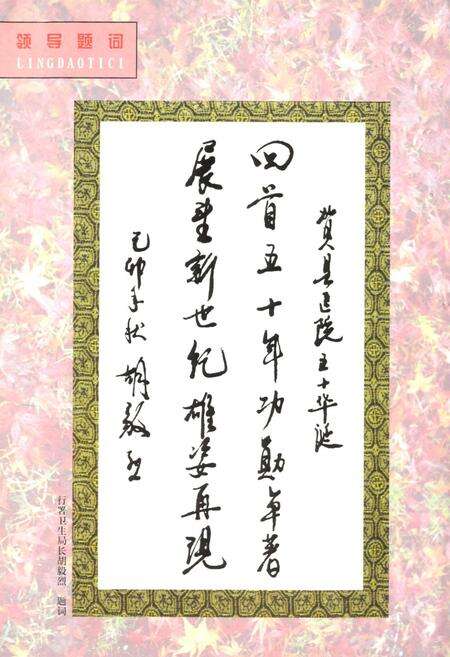 领导题词
LINGDAOTICI
贺县医院五十华诞
回首五十年功勋卓著
展望新世纪雄姿再现
己卯年秋 胡毅烈
行署卫生局长胡毅烈 题词